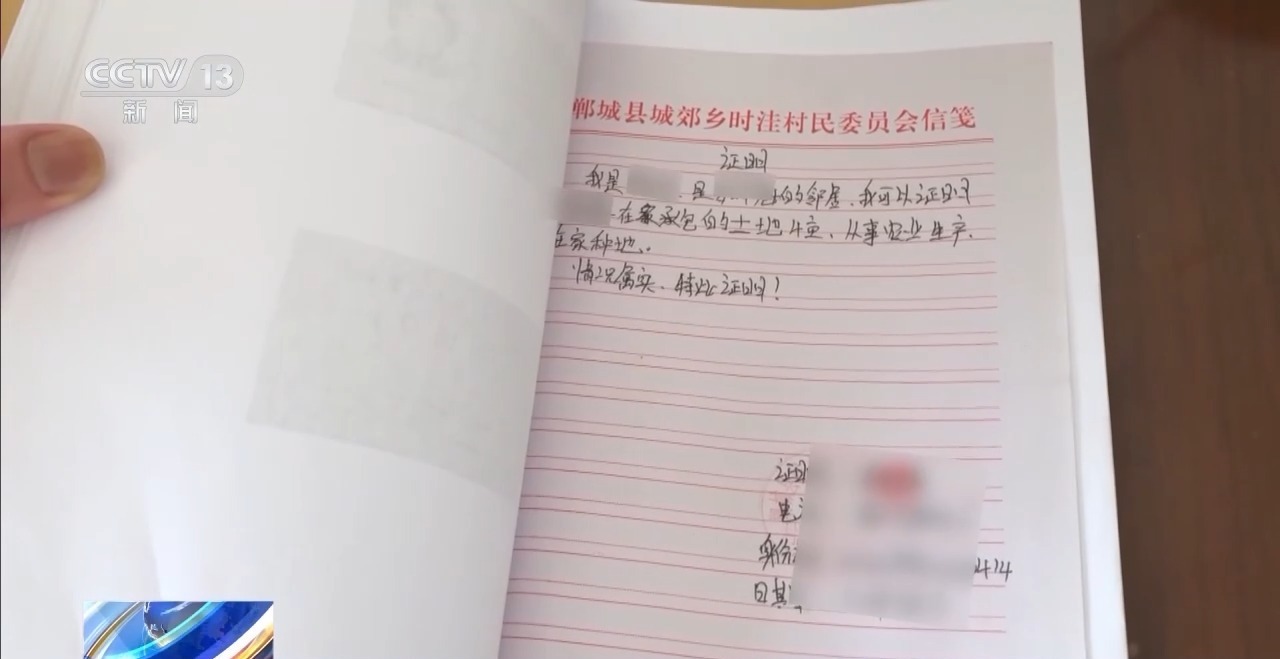 CCTV 13
新闻
郸城县城郊乡时洼村民委员会信笺
证明
我是 是 的邻居、我可以证明
在家承包的土地4亩、从事农业生产、
在家种地。
情况属实、特此证明!
证明
电
身份 414
日期